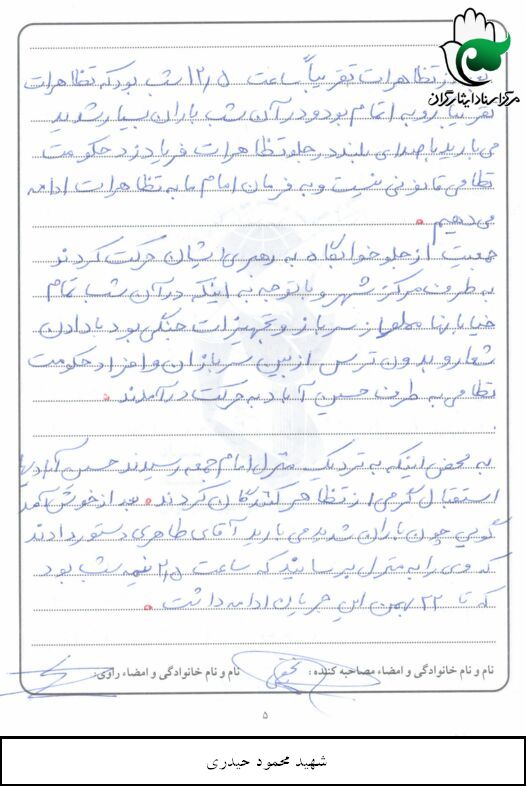 مرکز اسناد ایثارگران
از تظاهرات تقریباً ساعت ۱۲/۵ شب بود که تظاهرات
تقریباً رو به اتمام بود و در آن شب باران بسیار شدید
می بارید با صدای بلند در جلو تظاهرات فریاد زد حکومت
نظامی قانونی نیست و به فرمان امام ما به تظاهرات ادامه
می دهیم .
جمعیت از جلو خوابگاه به رهبری ایشان حرکت کردند
به طرف مرکز شهر و با توجه به اینکه در آن شب تمام
خیابانها مملو از سرباز و تجهیزات جنگی بود با دادن
شعار و بدون ترس از بین سربازان و افراد حکومت
نظامی به طرف حسین آباد به حرکت درآمدند .
به محض اینکه به نزدیک منزل امام جمعه رسیدند حسین آبادیها
استقبال گرمی از تظاهر کنندگان کردند . بعد از خوش آمد
گویی چون باران شدید می بارید آقای طاهری دستور دادند
که وی را به منزل برسانید که ساعت ۲/۵ نیمه شب بود
که تا ۲۲ بهمن این جریان ادامه داشت .
نام و نام خانوادگی و امضاء مصاحبه کننده : نام و نام خانوادگی و امضاء راوی:
۵
شهید محمود حیدری